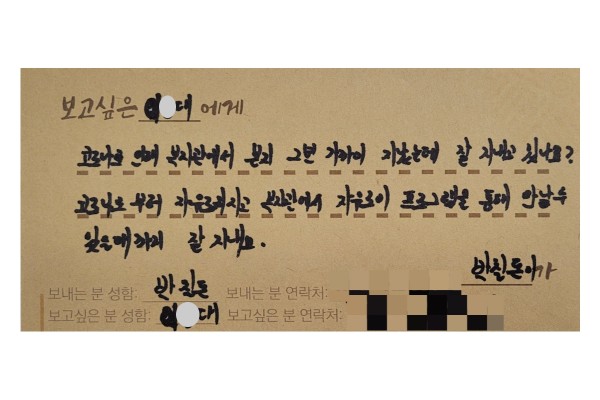 보고싶은 이 대 에게
코로나로 인해 복지관에서 본지 2년 가까이 지났는데 잘 지내고 있나요?
코로나로 부터 자유로워지고 복지관에서 자유로이 프로그램을 통해 만날 수
있을때 까지 잘 지내요.
박칠돈이가
보내는 분 성함: 박칠돈 보내는 분 연락처:
보고싶은 분 성함: 이 대 보고싶은 분 연락처: